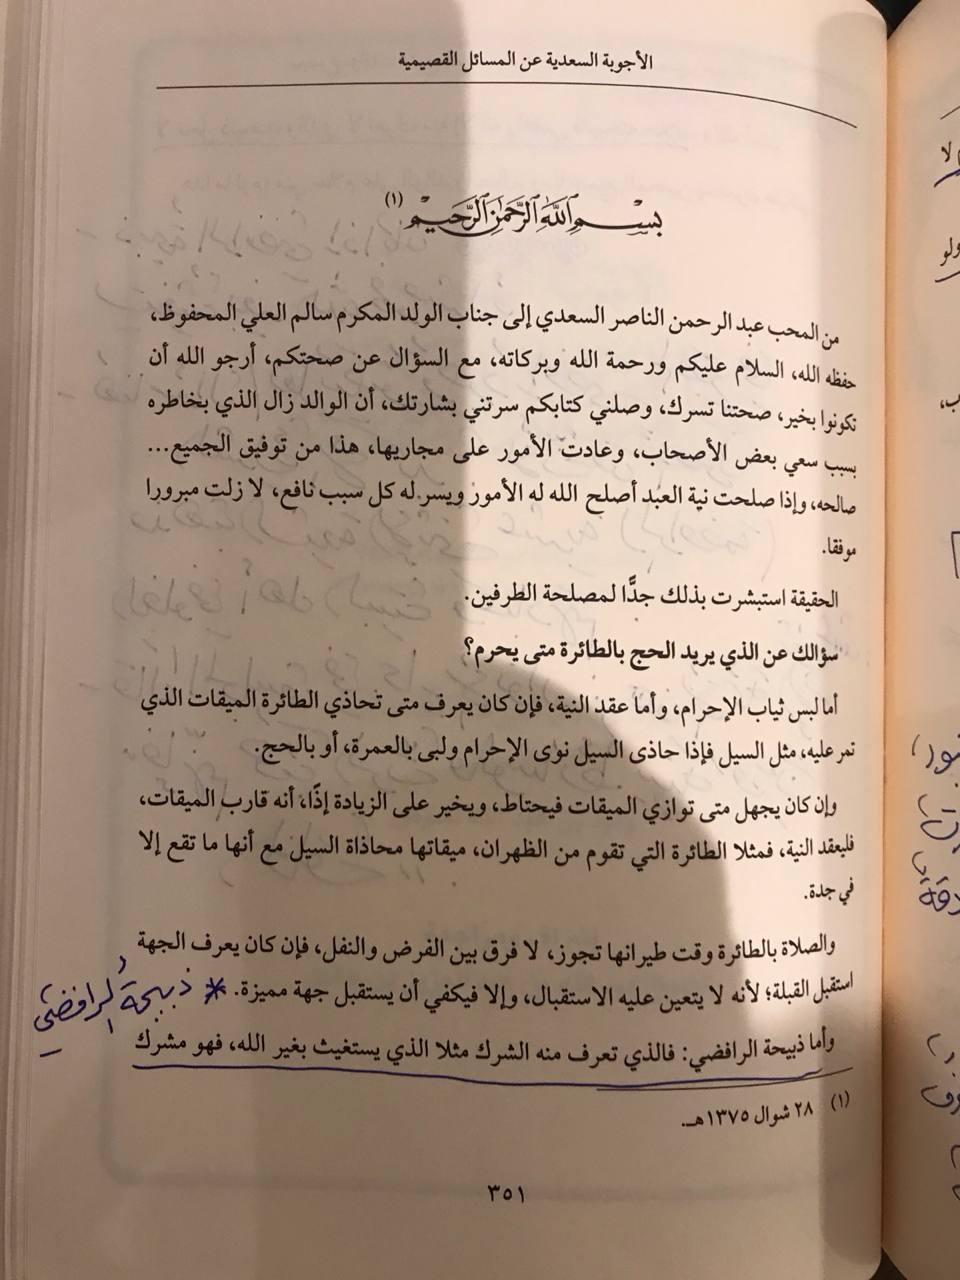 الأجوبة السعدية عن المسائل القصيمية
بسم الله الرحمن الرحيم (١)
من المحب عبد الرحمن الناصر السعدي إلى جناب الولد المكرم سالم العلي المحفوظ،
حفظه الله، السلام عليكم ورحمة الله وبركاته، مع السؤال عن صحتكم، أرجو الله أن
تكونوا بخير، صحتنا تسرك، وصلني كتابكم سرتني بشارتك، أن الوالد زال الذي بخاطره
بسبب سعي بعض الأصحاب، وعادت الأمور على مجاريها، هذا من توفيق الجميع...
صالحه، وإذا صلحت نية العبد أصلح الله له الأمور ويسر له كل سبب نافع، لا زلت مبرورا
موفقا.
الحقيقة استبشرت بذلك جدًّا لمصلحة الطرفين.
سؤالك عن الذي يريد الحج بالطائرة متى يحرم؟
أما لبس ثياب الإحرام، وأما عقد النية، فإن كان يعرف متى تحاذي الطائرة الميقات الذي
تمر عليه، مثل السيل فإذا حاذى السيل نوى الإحرام ولبى بالعمرة، أو بالحج.
وإن كان يجهل متى توازي الميقات فيحتاط، ويخير على الزيادة إذًا، أنه قارب الميقات،
فليعقد النية، فمثلا الطائرة التي تقوم من الظهران، ميقاتها محاذاة السيل مع أنها ما تقع إلا
في جدة.
والصلاة بالطائرة وقت طيرانها تجوز، لا فرق بين الفرض والنفل، فإن كان يعرف الجهة
استقبل القبلة؛ لأنه لا يتعين عليه الاستقبال، وإلا فيكفي أن يستقبل جهة مميزة. * ذبيحة الرافضي
وأما ذبيحة الرافضي: فالذي تعرف منه الشرك مثلا الذي يستغيث بغير الله، فهو مشرك
(١) ٢٨ شوال ١٣٧٥هـ.
٣٥١